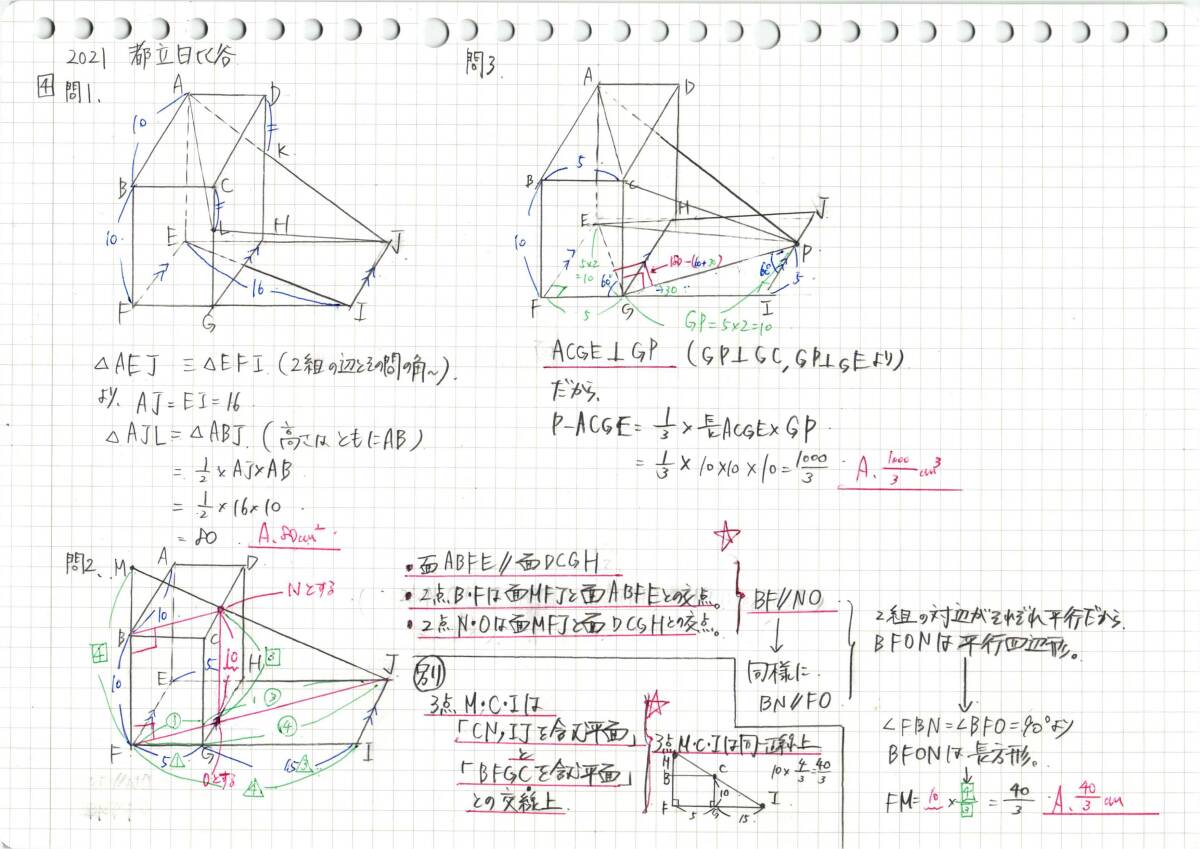 2021 都立日比谷
4 問1.
A
D
10
K
B
C
10
L
H
E
J
16
F
G
I
△AEJ ≡ △EFI (2組の辺とその間の角〜).
より. AJ = EI = 16
△AJL = △ABJ. (高さはともにAB)
= 1/2 × AJ × AB
= 1/2 × 16 × 10
= 80 A. 80cm²
問3.
A
D
5
B
C
H
J
E
10
P
5×2=10
180-(60+30)
60°
60°
30
5
F
5
G
I
GP=5×2=10
ACGE⊥GP (GP⊥GC, GP⊥GEより)
だから、
P-ACGE = 1/3 × 長ACGE × GP
= 1/3 × 10×10×10 = 1000/3 A. 1000/3 cm³
問2.
M
A
D
Nとする
10
B
C
4
5
10
3
H
J
10
E
①
③
④
F
5
1
G
15
3
I
4
Oとする
・面ABFE // 面DCGH
・2点B・Fは面MFJと面ABFEとの交点。
・2点N・Oは面MFJと面DCGHとの交点。
☆
BF//NO
↓
同様に.
BN//FO
2組の対辺がそれぞれ平行だから.
BFONは平行四辺形。
↓
∠FBN=∠BFO=90°より
BFONは長方形。
FM = 10 × 4/3 = 40/3 A. 40/3 cm
別
3点M・C・Iは
「CN, IJを含む平面」
と
「BFGCを含む平面」
との交線上.
☆
3点M・C・Iは同一直線上
M
B
C
10
F
5
G
15
I
10×4/3=40/3